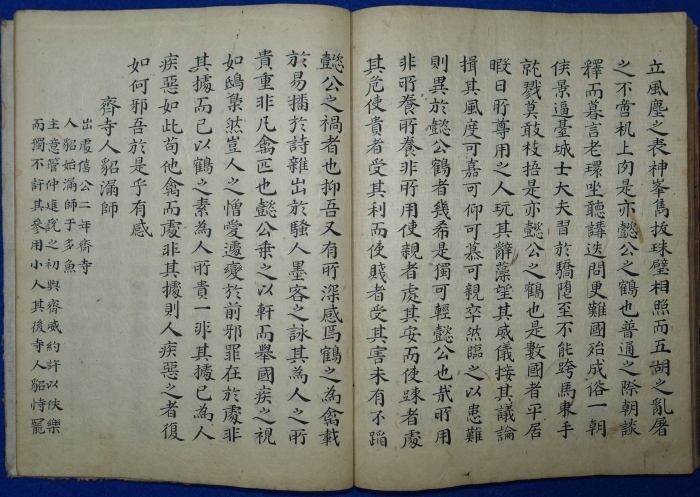 立風塵之表神峯雋拔珠璧相照而五湖之亂屠
之不啻机上肉是亦懿公之鶴也普通之際朝談
釋而暮言老環坐聽講迭問更難國殆成俗一朝
侯景逼臺城士大夫習於驕惰至不能跨馬束手
就戮莫敢枝捂是亦懿公之鶴也是數國者平居
暇日所尊用之人玩其辭藻望其威儀接其議論
揖其風度可嘉可仰可慕可親卒然臨之以患難
則異於懿公鶴者幾希是獨可輕懿公也哉所用
非所養所養非所用使親者處其安而使踈者處
其危使貴者受其利而使賤者受其害未有不蹈
懿公之禍者也抑吾又有所深感焉鶴之為禽載
於易播於詩雜出於騷人墨客之詠其為人之所
貴重非凡禽匹也懿公乘之以軒而舉國疾之視
如鴟梟然豈人之憎愛遽變於前邪罪在於處非
其據而已以鶴之素為人所貴一非其據已為人
疾惡如此苟他禽而處非其據則人疾惡之者復
如何邪吾於是乎有感
齊寺人貂漏師
出處僖公二年齊寺
人貂始漏師于多魚
主意管仲進說之初與齊威約許以佚樂
而獨不許其參用小人其後寺人貂恃寵